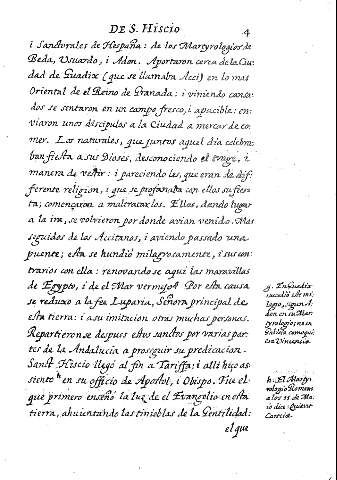 DE S. Hiscio
4
i Sanctorales de Hespaña: de los Martyrologios de
Beda, Usuardo, i Adon. Aportaron cerca de la Ciu-
dad de Guadix (que se llamaba Acci) en lo mas
Oriental de el Reino de Granada: i viniendo cansa-
dos se sentaron en un campo fresco, i apacible: en-
viaron unos discipulos a la Ciudad a mercar de co-
mer. Los naturales, que juntos aquel dia celebra-
ban fiesta a sus Dioses, desconociendo el trage, i
manera de vestir: i pareciendoles, que eran de dif-
ferente religion, i que se profanaba con ellos su fies-
ta; començaron a maltratarlos. Ellos, dando lugar
a la ira, se volvieron por donde avian venido. Mas
seguidos de los Accitanos, i aviendo passado una
puente; esta se hundió milagrosamente, i sus con-
trarios con ella: renovandose aqui las maravillas
de Egypto, i de el Mar vermejo. g Por esta causa
se reduxo a la fea Luparia, Señora principal de
esta tierra: i a su imitacion otras muchas personas.
Repartieronse despues estos sanctos por varias par-
tes de la Andalucia a proseguir su predicacion.
Sanct Hiscio llegó al fin a Tariffa: i alli hiço as-
siento h en su officio de Apostol, i Obispo. Fue el
que primero enseñó la luz de el Evangelio en esta
tierra, ahuientando las tinieblas de la Gentilidad:
el que
g. En Guadix
sucedió est mi-
lagro, segun A-
don en su Mar-
tyrologio; no en
Galicia como qui-
so Vincencio
h. El Marty-
rologio Romano
a los 15 de Ma-
io dia
Carteia